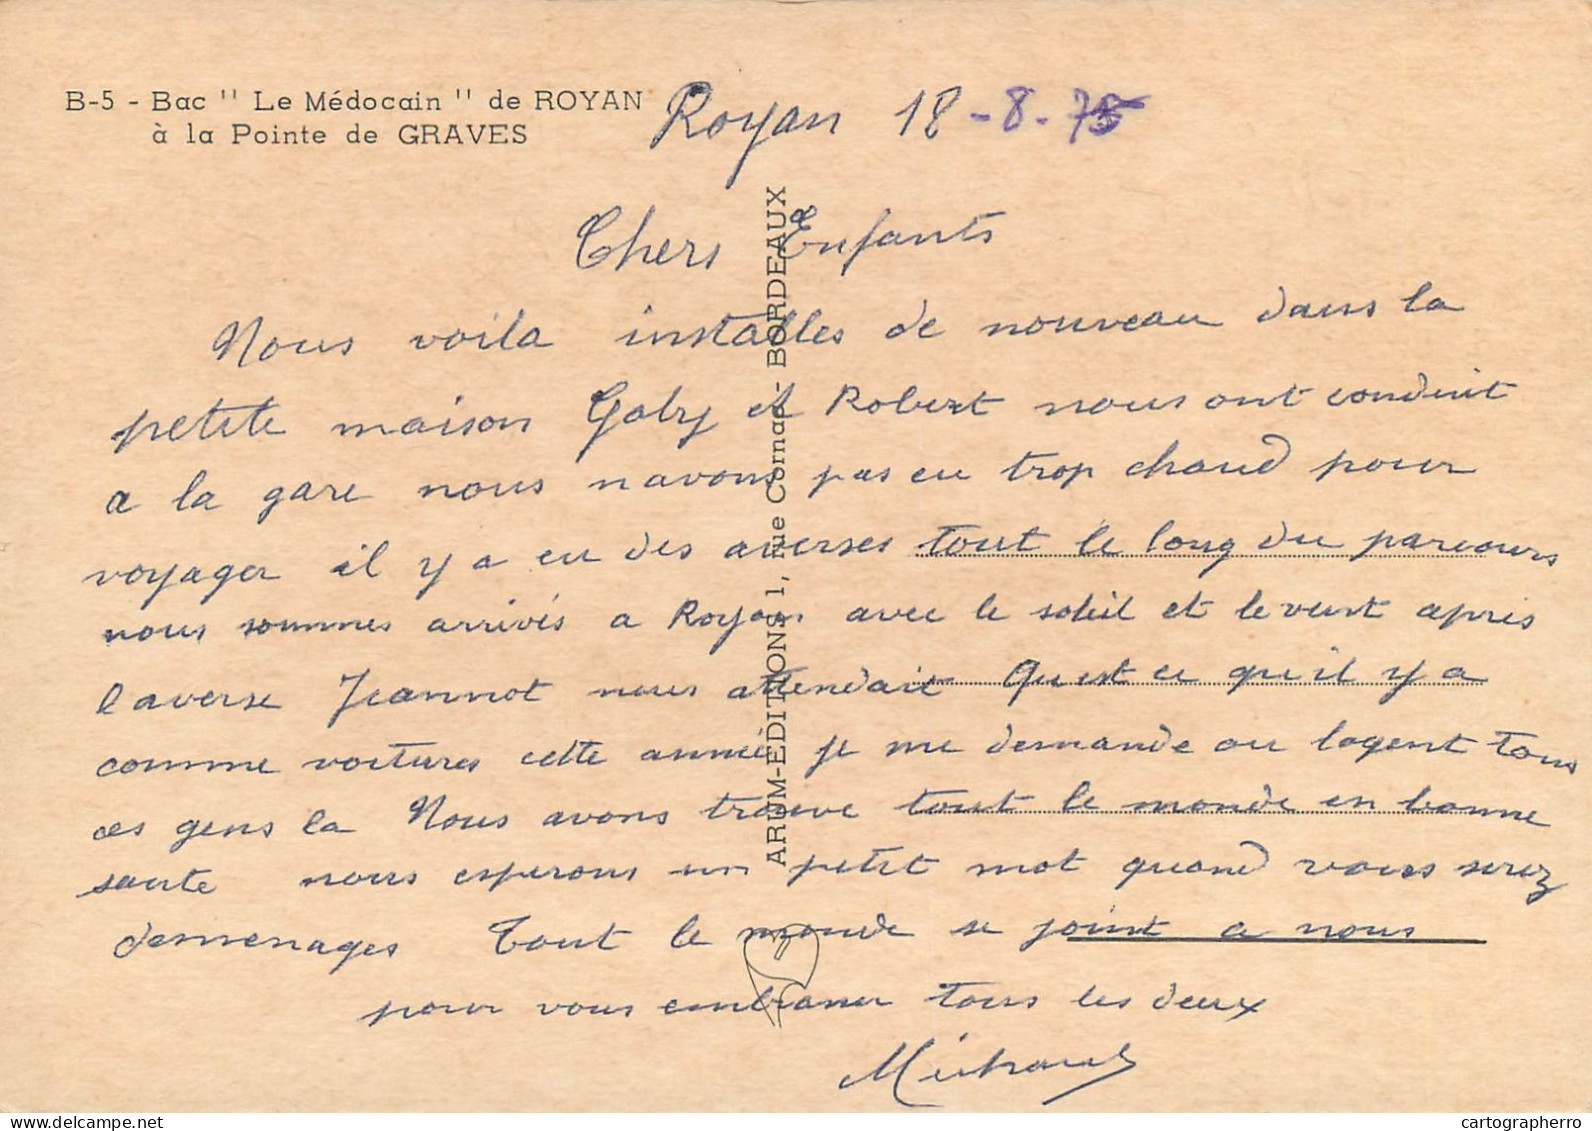 B-5 - Bac " Le Médocain " de ROYAN
à la Pointe de GRAVES
Royan 18 -8. 75
Chers Enfants
Nous voila installes de nouveau dans la
petite maison Gaby et Robert nous ont conduit
a la gare nous navons pas eu trop chaud pour
voyager il y a eu des averses tout le long du parcours
nous sommes arrivés a Royan avec le soleil et le vent après
laverse Jeannot nous attendait Quest ce qu il y a
comme voitures cette année je me demande ou logent tous
ces gens la Nous avons trouve tout le monde en bonne
sante nous esperons un petit mot quand vous serez
demenages Tout le monde se joint a nous
pour vous embrasser tous les deux
ARUM-EDITIONS, 1, rue Cornac - BORDEAUX
cartographerro